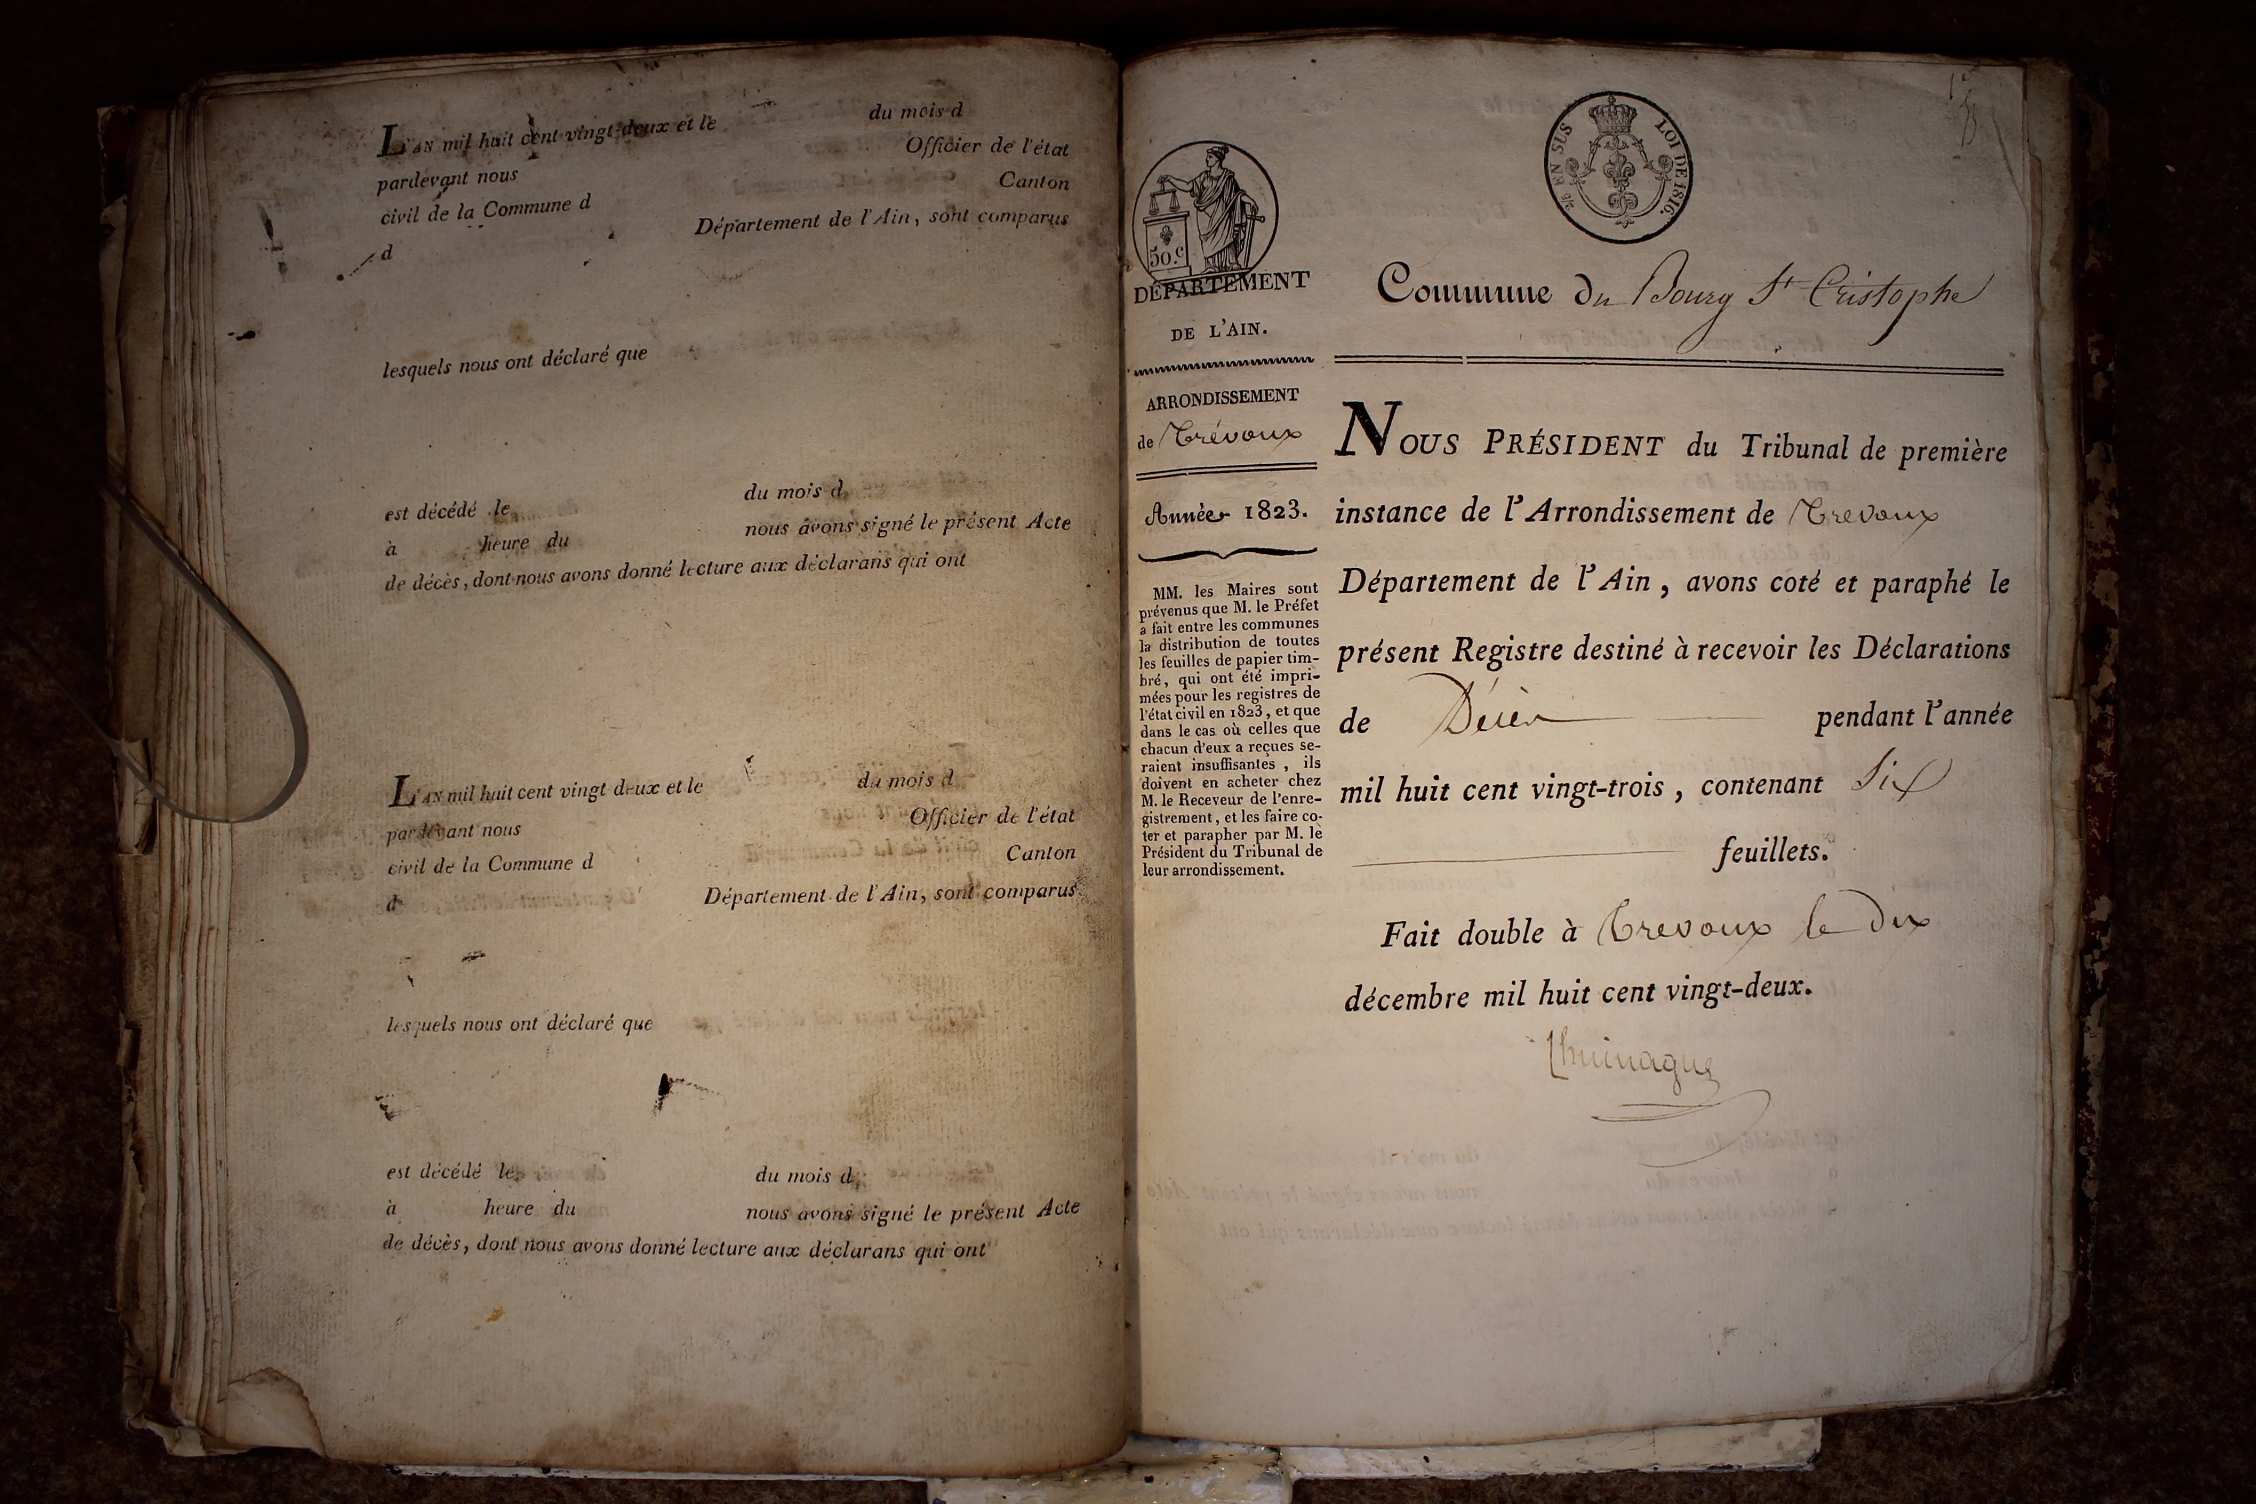 L'AN mil huit cent vingt-deux et le du mois d
pardevant nous Officier de l'état
civil de la Commune d Canton
d Département de l'Ain, sont comparus
lesquels nous ont déclaré que
est décédé le du mois d
à heure du nous avons signé le présent Acte
de décès, dont nous avons donné lecture aux déclarans qui ont
L'AN mil huit cent vingt deux et le du mois d
pardevant nous Officier de l'état
civil de la Commune d Canton
d Département de l'Ain, sont comparus
lesquels nous ont déclaré que
est décédé le du mois d
à heure du nous avons signé le présent Acte
de décès, dont nous avons donné lecture aux déclarans qui ont
EN SUS LOI DE 1816.
50.c
DÉPARTEMENT
DE L'AIN.
ARRONDISSEMENT
de Trévoux
Année 1823.
MM. les Maires sont
prévenus que M. le Préfet
a fait entre les communes
la distribution de toutes
les feuilles de papier tim-
bré, qui ont été impri-
mées pour les registres de
l'état civil en 1823, et que
dans le cas où celles que
chacun d'eux a reçues se-
raient insuffisantes, ils
doivent en acheter chez
M. le Receveur de l'enre-
gistrement, et les faire co-
ter et parapher par M. le
Président du Tribunal de
leur arrondissement.
Commune du Bourg St Cristophe
NOUS PRÉSIDENT du Tribunal de première
instance de l'Arrondissement de Trevoux
Département de l'Ain, avons coté et paraphé le
présent Registre destiné à recevoir les Déclarations
de Décès pendant l'année
mil huit cent vingt-trois, contenant Six
feuillets.
Fait double à Trevoux le dix
décembre mil huit cent vingt-deux.